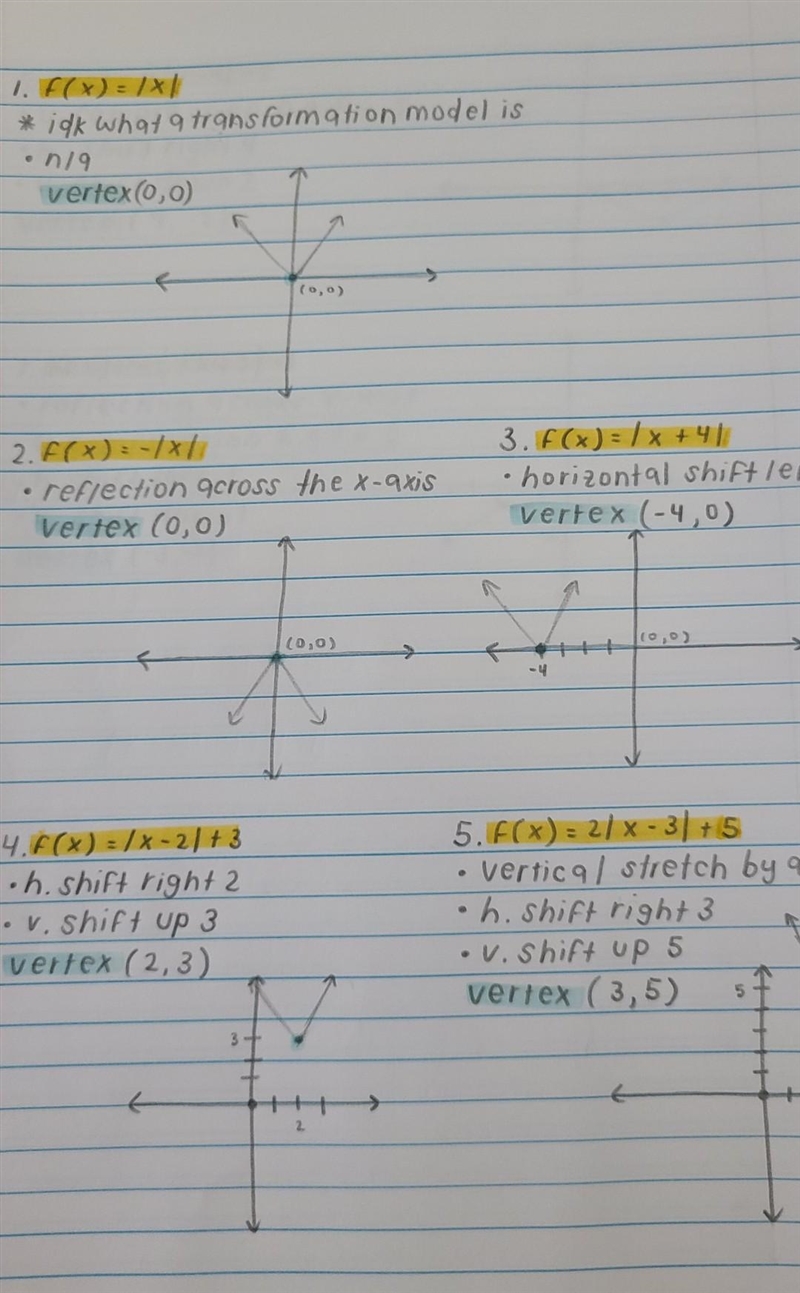 1. f(x) = |x|
* idk what a transformation model is
• n/a
vertex(0,0)
(0,0)
2. f(x) = -|x|
• reflection across the x-axis
vertex (0,0)
(0,0)
3. f(x) = |x + 4|
• horizontal shift
vertex (-4,0)
(0,0)
-4
4. f(x) = |x - 2| + 3
• h. shift right 2
• v. shift up 3
vertex (2,3)
3
2
5. f(x) = 2|x - 3| + 5
• vertical stretch by
• h. shift right 3
• v. shift up 5
vertex (3,5)
5